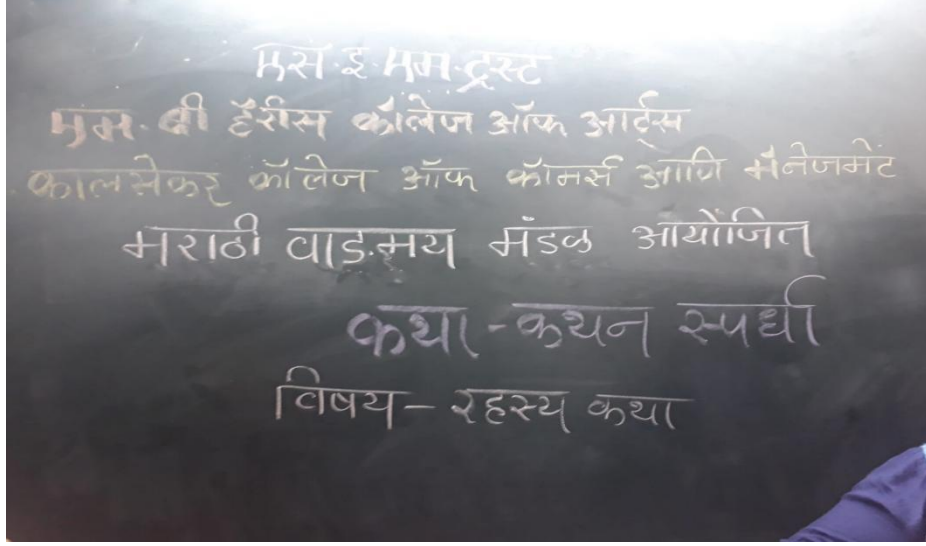 एस.इ.एम.ट्रस्ट
एम. बी हॅरीस कॉलेज ऑफ आर्ट्स
कालसेकर कॉलेज ऑफ कॉमर्स आणि मॅनेजमेंट
मराठी वाङ.मय मंडळ आयोजित
कथा - कथन स्पर्धा
विषय - रहस्य कथा